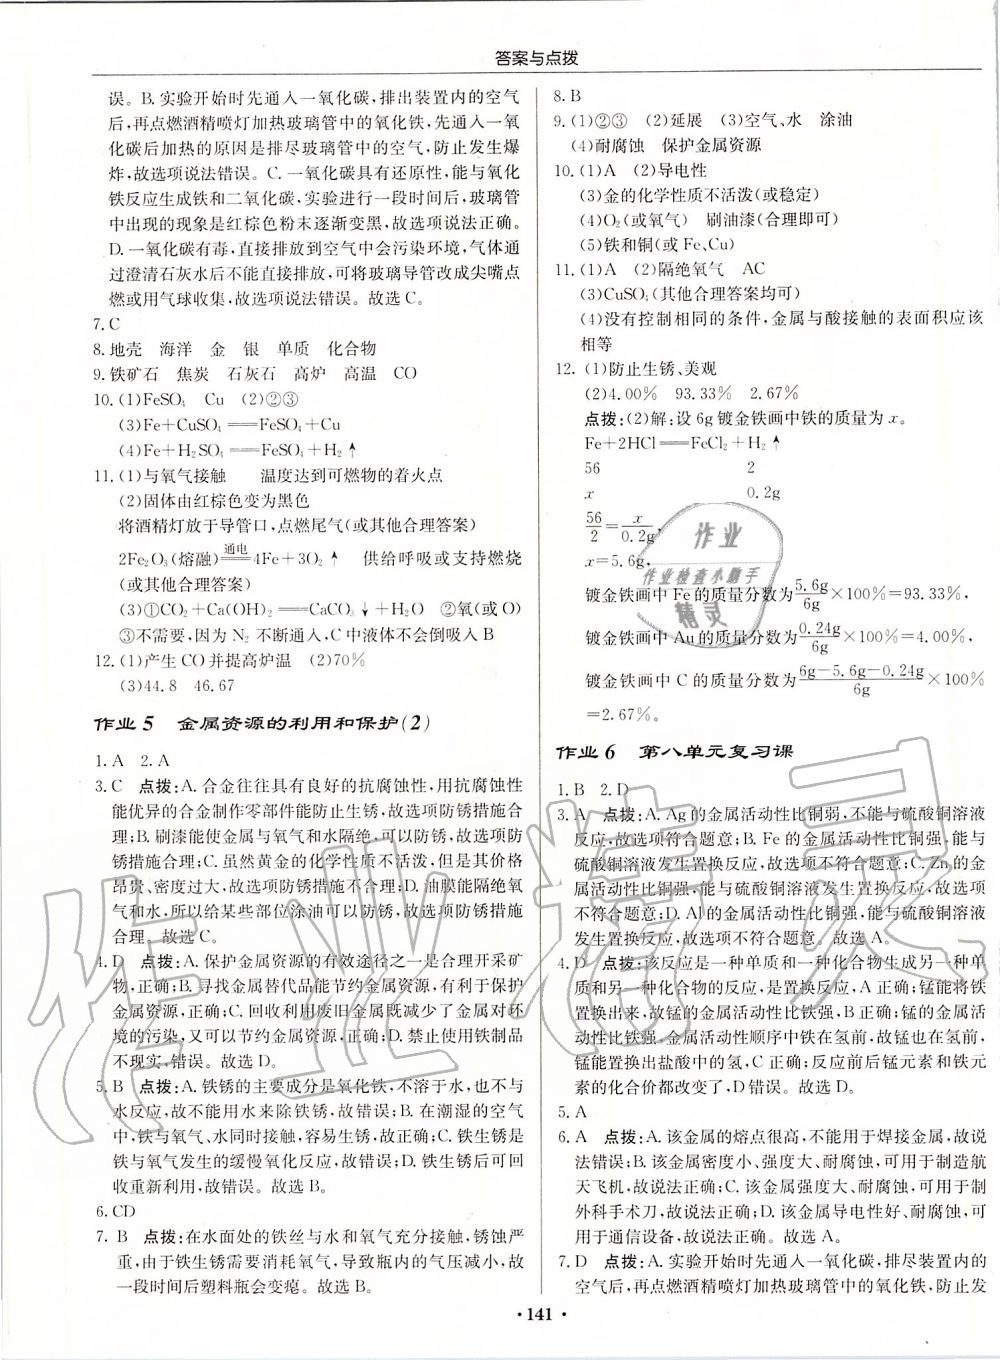 答案与点拨
误。B. 实验开始时先通入一氧化碳,排出装置内的空气
后,再点燃酒精喷灯加热玻璃管中的氧化铁,先通入一氧
化碳后加热的原因是排尽玻璃管中的空气,防止发生爆
炸,故选项说法错误。C. 一氧化碳具有还原性,能与氧化
铁反应生成铁和二氧化碳,实验进行一段时间后,玻璃管
中出现的现象是红棕色粉末逐渐变黑,故选项说法正确。
D. 一氧化碳有毒,直接排放到空气中会污染环境,气体通
过澄清石灰水后不能直接排放,可将玻璃导管改成尖嘴点
燃或用气球收集,故选项说法错误。故选 C。
7. C
8. 地壳 海洋 金 银 单质 化合物
9. 铁矿石 焦炭 石灰石 高炉 高温 CO
10. (1)FeSO₄ Cu (2)②③
(3)Fe+CuSO₄═══FeSO₄+Cu
(4)Fe+H₂SO₄═══FeSO₄+H₂↑
11. (1)与氧气接触 温度达到可燃物的着火点
(2)固体由红棕色变为黑色
将酒精灯放于导管口,点燃尾气(或其他合理答案)
2Fe₂O₃(熔融)═通电═4Fe+3O₂↑ 供给呼吸或支持燃烧
(或其他合理答案)
(3)①CO₂+Ca(OH)₂═══CaCO₃↓+H₂O ②氧(或 O)
③不需要,因为 N₂ 不断通入,C 中液体不会倒吸入 B
12. (1)产生 CO 并提高炉温 (2)70%
(3)44.8 46.67
作业 5 金属资源的利用和保护(2)
1. A 2. A
3. C 点拨:A. 合金往往具有良好的抗腐蚀性,用抗腐蚀性
能优异的合金制作零部件能防止生锈,故选项防锈措施合
理;B. 刷漆能使金属与氧气和水隔绝,可以防锈,故选项防
锈措施合理;C. 虽然黄金的化学性质不活泼,但是其价格
昂贵、密度过大,故选项防锈措施不合理;D. 油膜能隔绝氧
气和水,所以给某些部位涂油可以防锈,故选项防锈措施
合理。故选 C。
4. D 点拨:A. 保护金属资源的有效途径之一是合理开采矿
物,正确;B. 寻找金属替代品能节约金属资源,有利于保护
金属资源,正确;C. 回收利用废旧金属既减少了金属对环
境的污染,又可以节约金属资源,正确;D. 禁止使用铁制品
不现实,错误。故选 D。
5. B 点拨:A. 铁锈的主要成分是氧化铁,不溶于水,也不与
水反应,故不能用水来除铁锈,故错误;B. 在潮湿的空气
中,铁与氧气、水同时接触,容易生锈,正确;C. 铁生锈是
铁与氧气发生的缓慢氧化反应,故错误;D. 铁生锈后可回
收重新利用,故错误。故选 B。
6. CD
7. B 点拨:在水面处的铁丝与水和氧气充分接触,锈蚀严
重,由于铁生锈需要消耗氧气,导致瓶内的气压减小,故
一段时间后塑料瓶会变瘪。故选 B。
8. B
9. (1)①②③ (2)延展 (3)空气、水 涂油
(4)耐腐蚀 保护金属资源
10. (1)A (2)导电性
(3)金的化学性质不活泼(或稳定)
(4)O₂(或氧气) 刷油漆(合理即可)
(5)铁和铜(或 Fe、Cu)
11. (1)A (2)隔绝氧气 AC
(3)CuSO₄(其他合理答案均可)
(4)没有控制相同的条件,金属与酸接触的表面积应该
相等
12. (1)防止生锈、美观
(2)4.00% 93.33% 2.67%
点拨:(2)解:设 6g 镀金铁画中铁的质量为 x。
Fe+2HCl═══FeCl₂+H₂↑
56 2
x 0.2g
56/2=x/0.2g,
x=5.6g,
镀金铁画中 Fe 的质量分数为5.6g/6g×100%=93.33%,
镀金铁画中 Au 的质量分数为0.24g/6g×100%=4.00%,
镀金铁画中 C 的质量分数为(6g-5.6g-0.24g)/6g×100%
=2.67%。
作业 6 第八单元复习课
1. B 2. D
3. A 点拨:A. Ag 的金属活动性比铜弱,不能与硫酸铜溶液
反应,故选项符合题意;B. Fe 的金属活动性比铜强,能与
硫酸铜溶液发生置换反应,故选项不符合题意;C. Zn 的金
属活动性比铜强,能与硫酸铜溶液发生置换反应,故选项
不符合题意;D. Al 的金属活动性比铜强,能与硫酸铜溶液
发生置换反应,故选项不符合题意。故选 A。
4. D 点拨:该反应是一种单质和一种化合物生成另一种单
质和另一种化合物的反应,是置换反应,A 正确;锰能将铁
置换出来,故锰的金属活动性比铁强,B 正确;锰的金属活
动性比铁强,金属活动性顺序中铁在氢前,故锰也在氢前,
锰能置换出盐酸中的氢,C 正确;反应前后锰元素和铁元
素的化合价都改变了,D 错误。故选 D。
5. A
6. A 点拨:A. 该金属的熔点很高,不能用于焊接金属,故说
法错误;B. 该金属密度小、强度大、耐腐蚀,可用于制造航
天飞机,故说法正确;C. 该金属强度大、耐腐蚀,可用于制
外科手术刀,故说法正确;D. 该金属导电性好、耐腐蚀,可
用于通信设备,故说法正确。故选 A。
7. D 点拨:A. 实验开始时先通入一氧化碳,排出装置内的
空气后,再点燃酒精喷灯加热玻璃管中的氧化铁,防止发
· 141 ·
作业
作业检查小助手
精灵
作业精灵